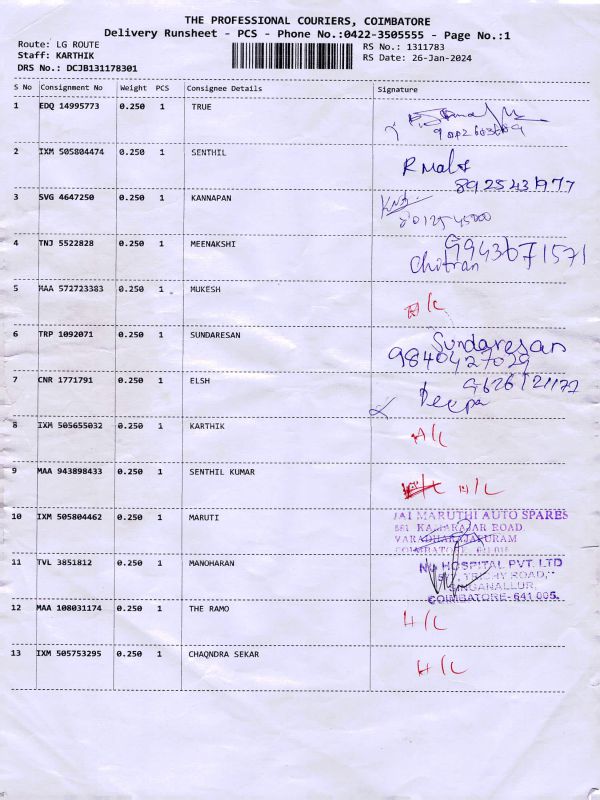 THE PROFESSIONAL COURIERS, COIMBATORE
Delivery Runsheet - PCS - Phone No.:0422-3505555 - Page No.:1
Route: LG ROUTE RS No.: 1311783
Staff: KARTHIK RS Date: 26-Jan-2024
DRS No.: DCJB131178301
S No Consignment No Weight PCS Consignee Details Signature
1 EDQ 14995773 0.250 1 TRUE
2 IXM 505804474 0.250 1 SENTHIL
8925431977
3 SVG 4647250 0.250 1 KANNAPAN
4 TNJ 5522828 0.250 1 MEENAKSHI 9943671571
Chitran
5 MAA 572723383 0.250 1 MUKESH
6 TRP 1092071 0.250 1 SUNDARESAN Sundaresan
9840427029
7 CNR 1771791 0.250 1 ELSH
Deepa
8 IXM 505655032 0.250 1 KARTHIK A/C
9 MAA 943898433 0.250 1 SENTHIL KUMAR
10 IXM 505804462 0.250 1 MARUTI JAI MARUTHI AUTO SPARES
KAMARAJAR ROAD
VARADHARAJAPURAM
COIMBATORE
11 TVL 3851812 0.250 1 MANOHARAN HOSPITAL PVT. LTD
TRICHY ROAD,
SINGANALLUR,
COIMBATORE-641 005.
12 MAA 108031174 0.250 1 THE RAMO H/C
13 IXM 505753295 0.250 1 CHAQNDRA SEKAR H/C